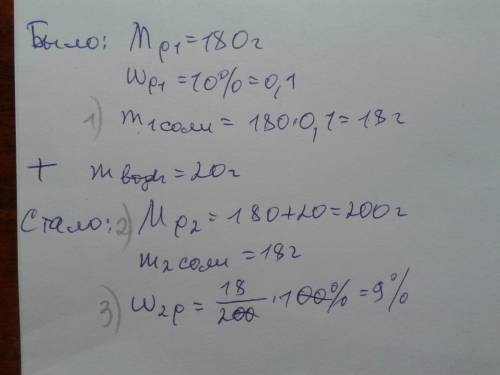 Было: Mр1 = 180г
Wр1 = 10% = 0,1
1) m1соли = 180·0,1 = 18г
+ mводы = 20г
Стало: 2) Mр2 = 180+20 = 200г
m2соли = 18г
3) W2р = 18/200 · 100% = 9%